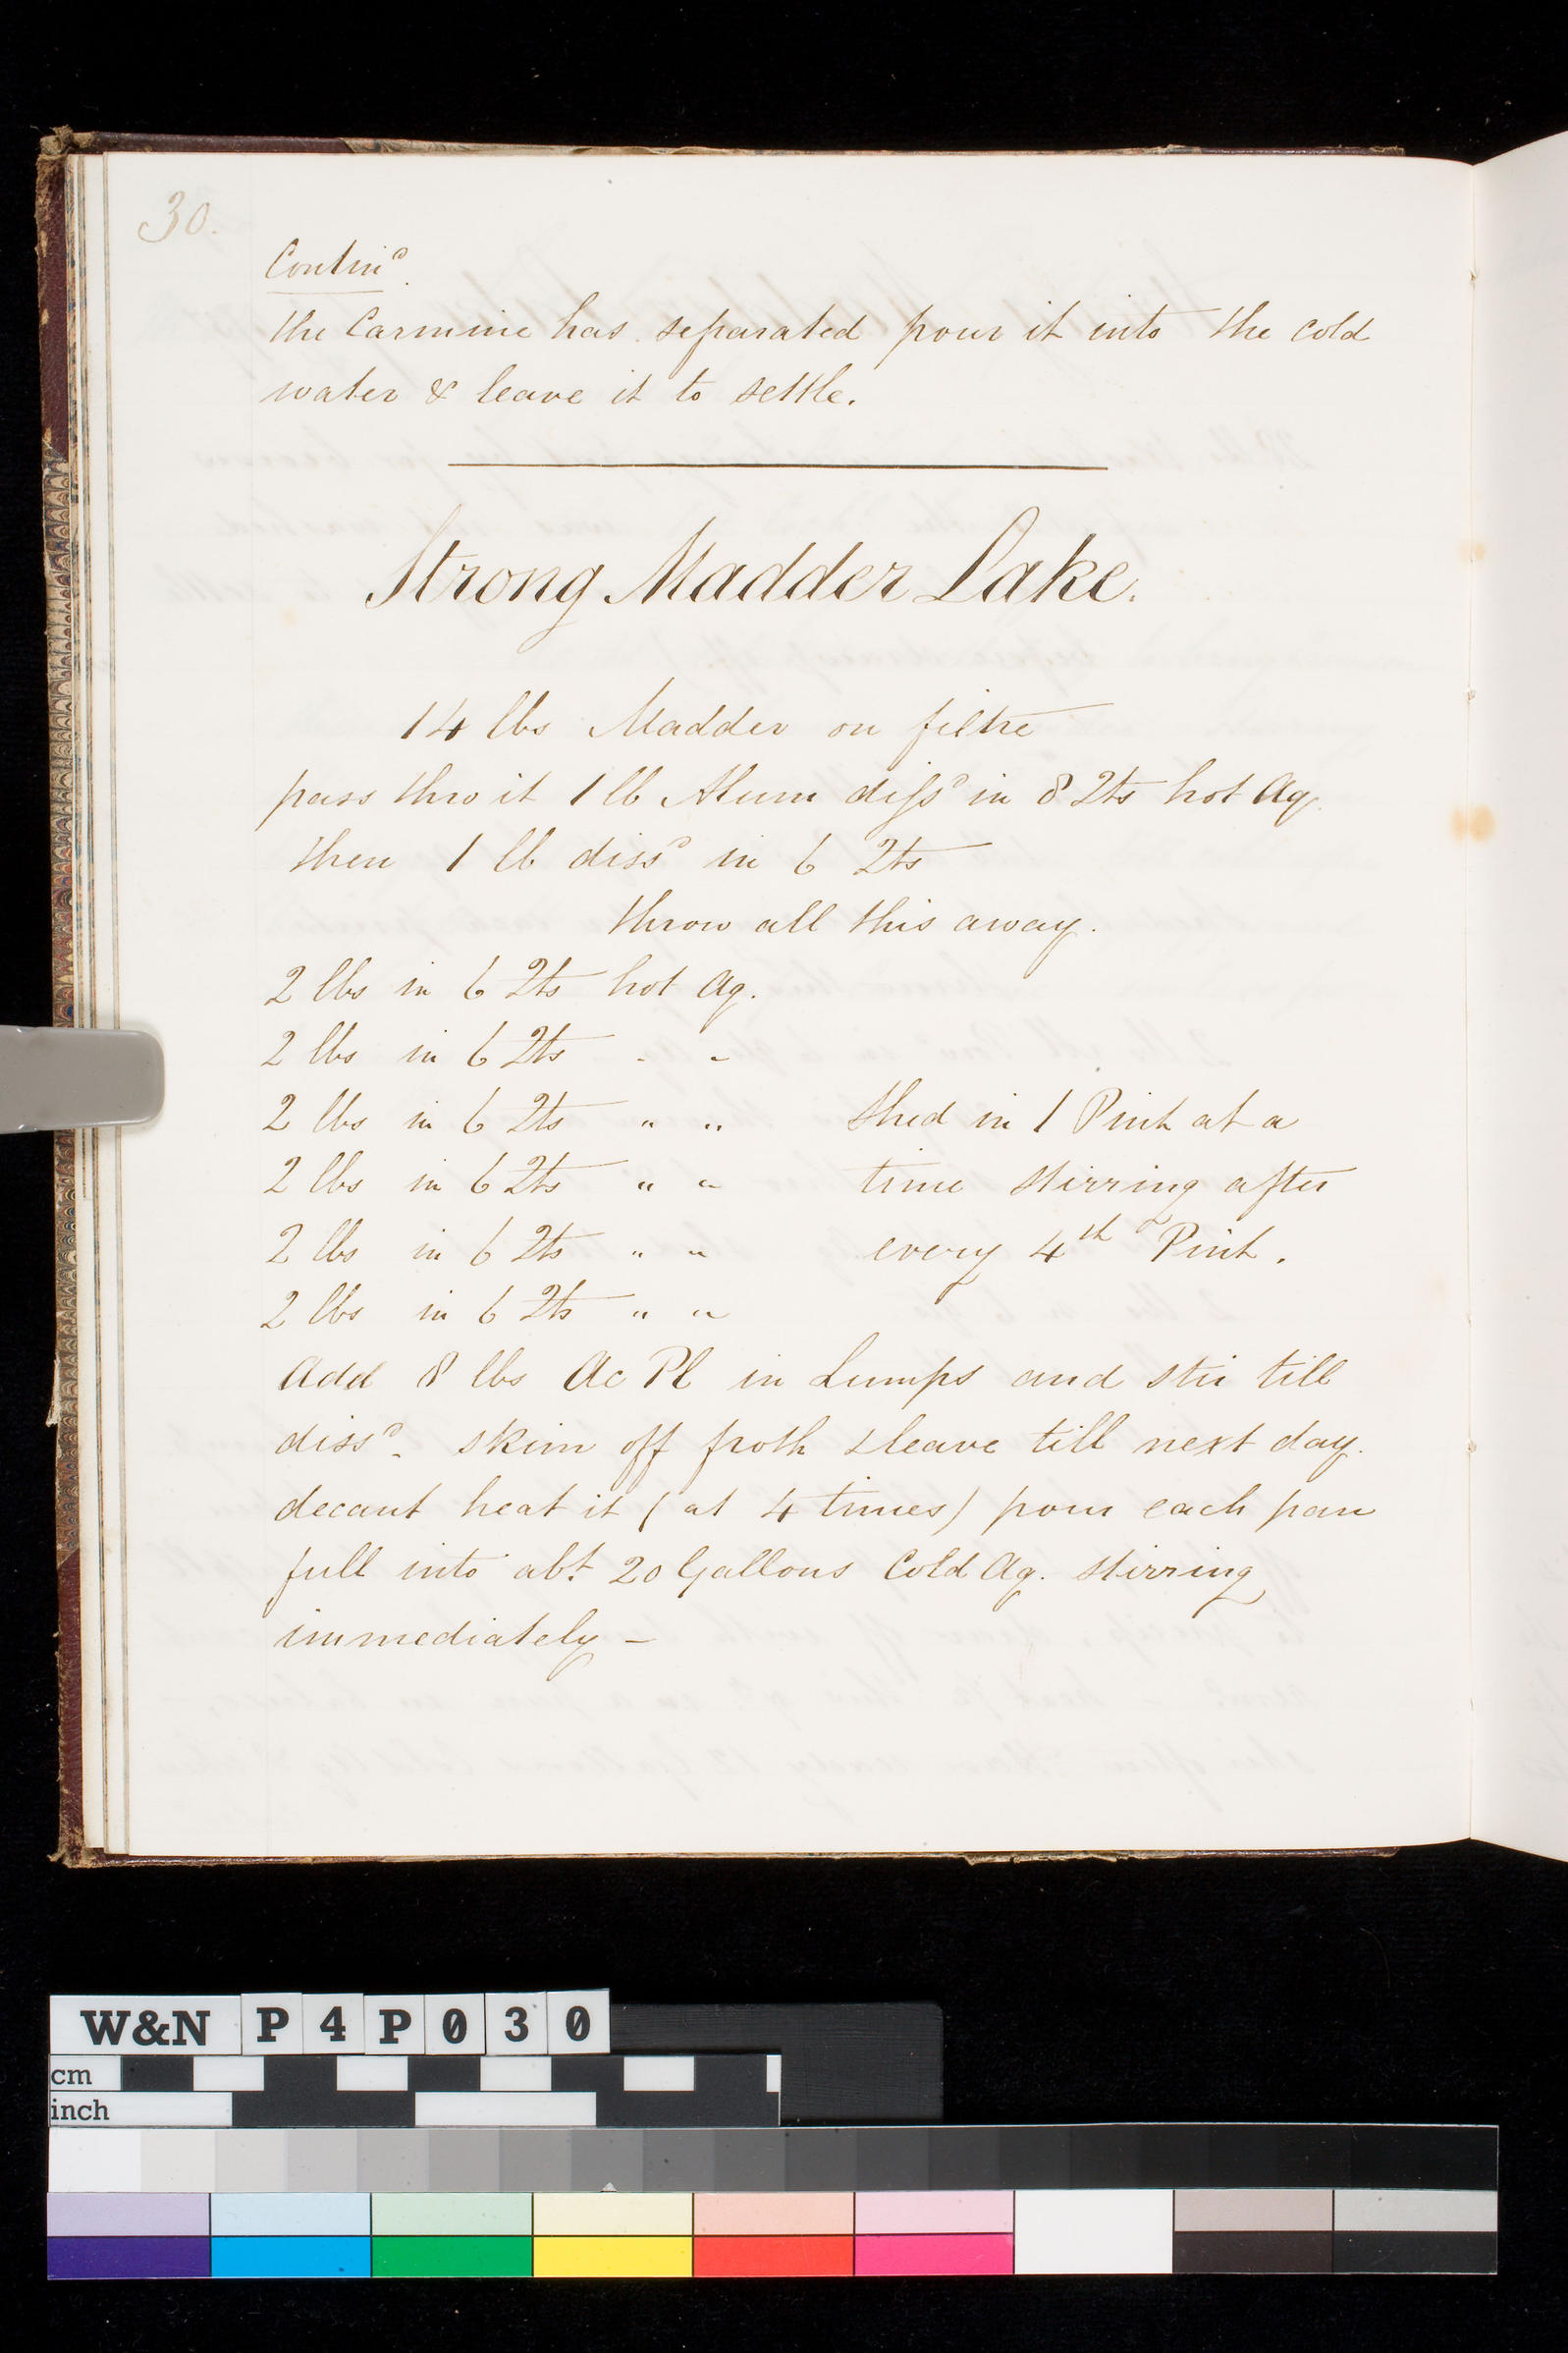 30.
Contind.
the Carmine has separated pour it into the cold
water & leave it to settle.
Strong Madder Lake.
14 lbs Madder on filtre
pass thro it 1 lb Alum dissd in 8 Qts hot Aq.
then 1 lb dissd in 6 Qts
throw all this away.
2 lbs in 6 Qts hot Aq.
2 lbs in 6 Qts " "
2 lbs in 6 Qts " " Shed in 1 Pint at a
2 lbs in 6 Qts " " time stirring after
2 lbs in 6 Qts " " every 4th Pint.
2 lbs in 6 Qts " "
Add 8 lbs Ac Pl in Lumps and stir till
dissd. skim off froth & leave till next day.
decant heat it (at 4 times) pour each pan
full into abt. 20 Gallons Cold Aq. stirring
immediately -
W&N P4P030
cm
inch